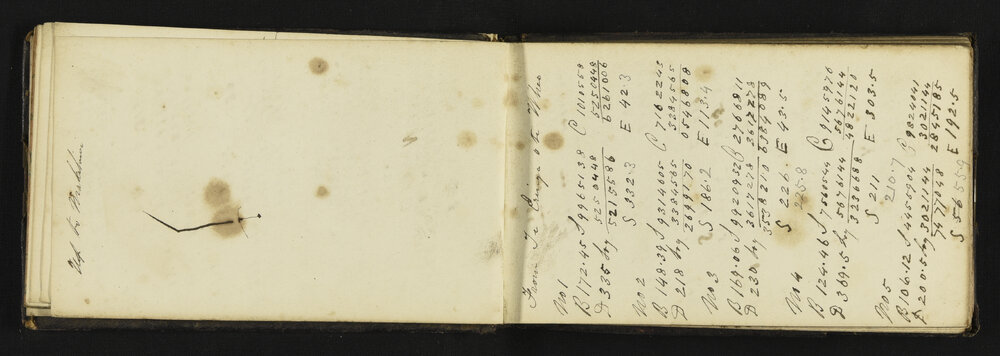 Up to
From Te
No 1
B 172.45 S 9965138 C 1010558
D 335 by 5250448 5250448
5215586 6261006
S 332.3 E 42.3
No 2
B 148.39 S 9314005 C 7162243
D 218 by 3384565 3384565
2699170 0546808
S 186.2 E 113.4
No 3
B 169.06 S 9920952 C 2766811
D 230 by 3617278 3617278
3538213 6384089
S 226. E 43.5
225.8
No 4
B 124.46 S 7560544 C 9145976
D 369.5 by 5676144 5676144
3236688 4822120
S 211 E 303.5
210.7
No 5
B 106.12 S 4450904 C 9824141
D 200.5 by 3021144 3021144
7471948 2845185
S 56 55.9 E 192.5